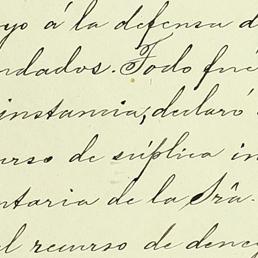 yo á la defensa d
ndados. Todo fué
instancia, declaró
urso de súplica in
ntaria de la Srâ.
el recurso de deneg